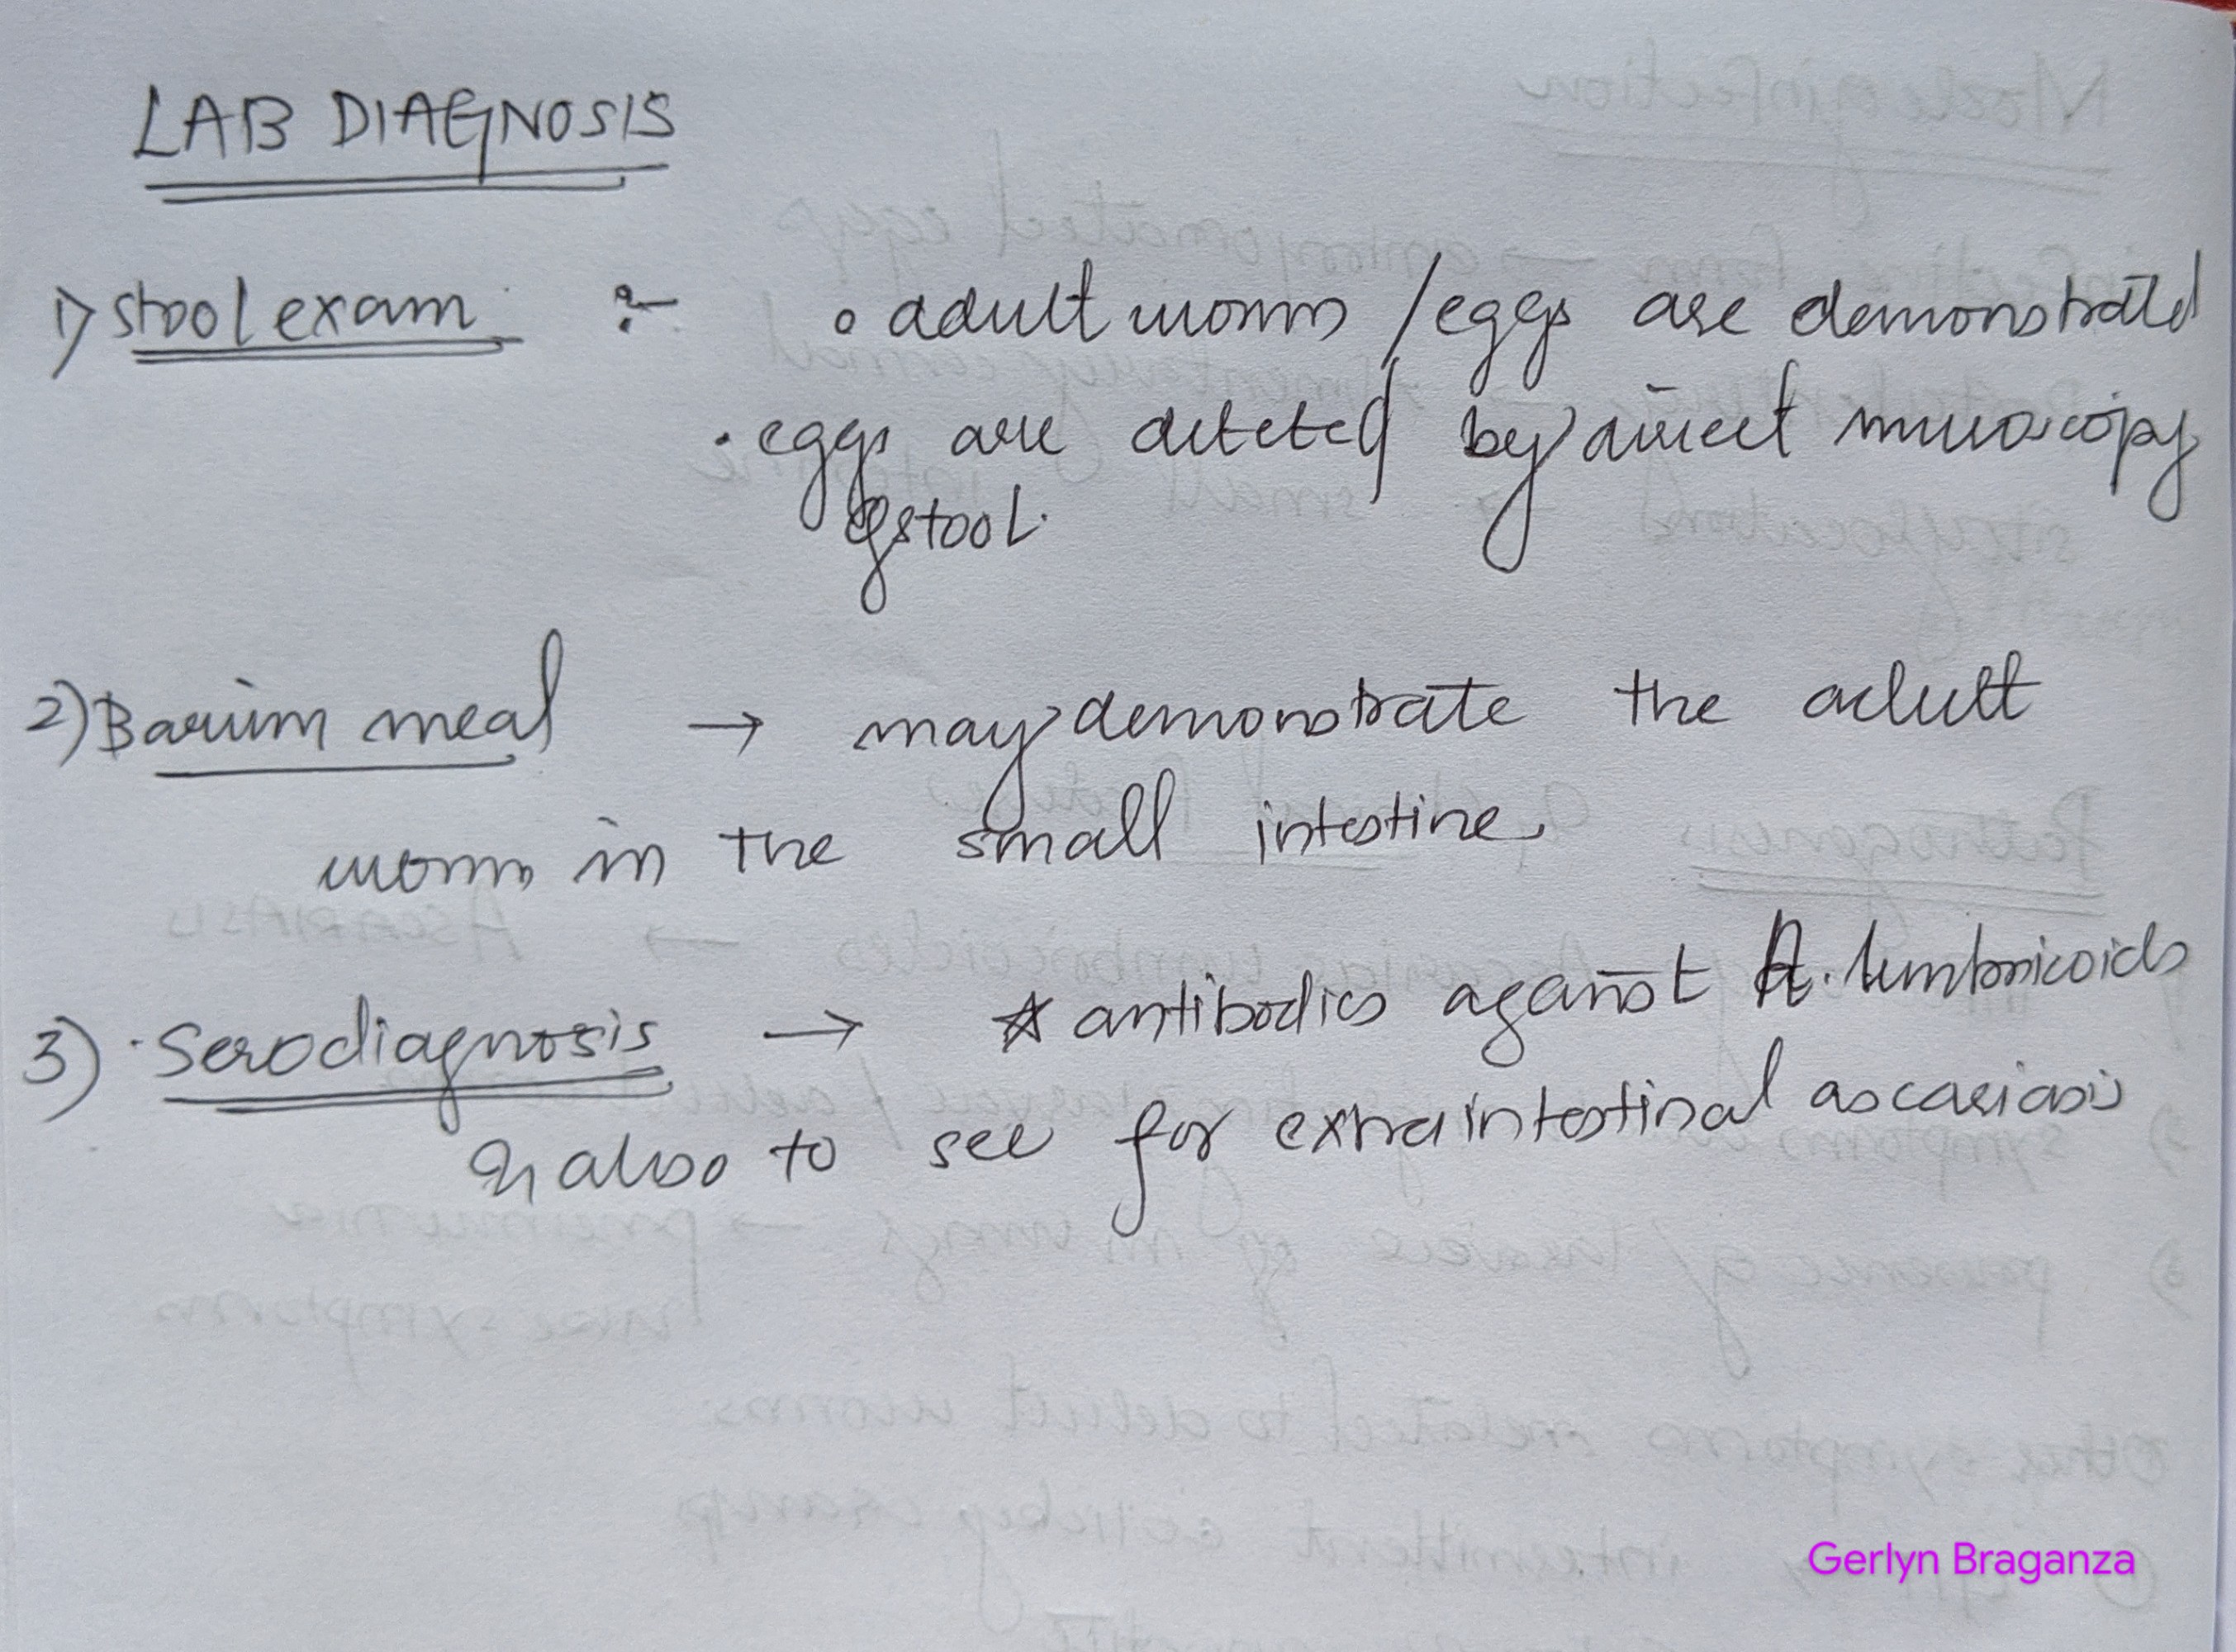 LAB DIAGNOSIS
1) stool exam :- o adult worms / eggs are demonstrated
• eggs are deteted by direct microscopy
of stool.
2) Barium meal → may demonstrate the adult
worms in the small intestine.
3) Serodiagnosis → ☆ antibodies against A. lumbricoids
& also to see for extraintestinal ascariasis
Gerlyn Braganza